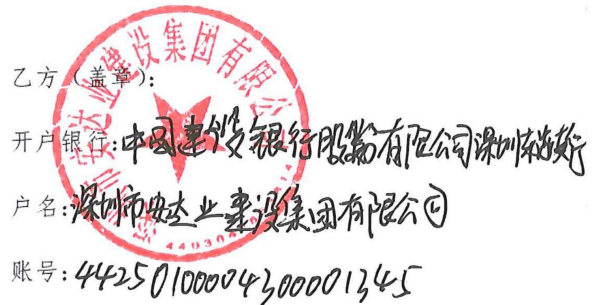 乙方（盖章）：
开户银行：中国建设银行股份有限公司深圳东海支行
户名：深圳市安达业建设集团有限公司
账号：44250100004300001345
深圳市安达业建设集团有限公司